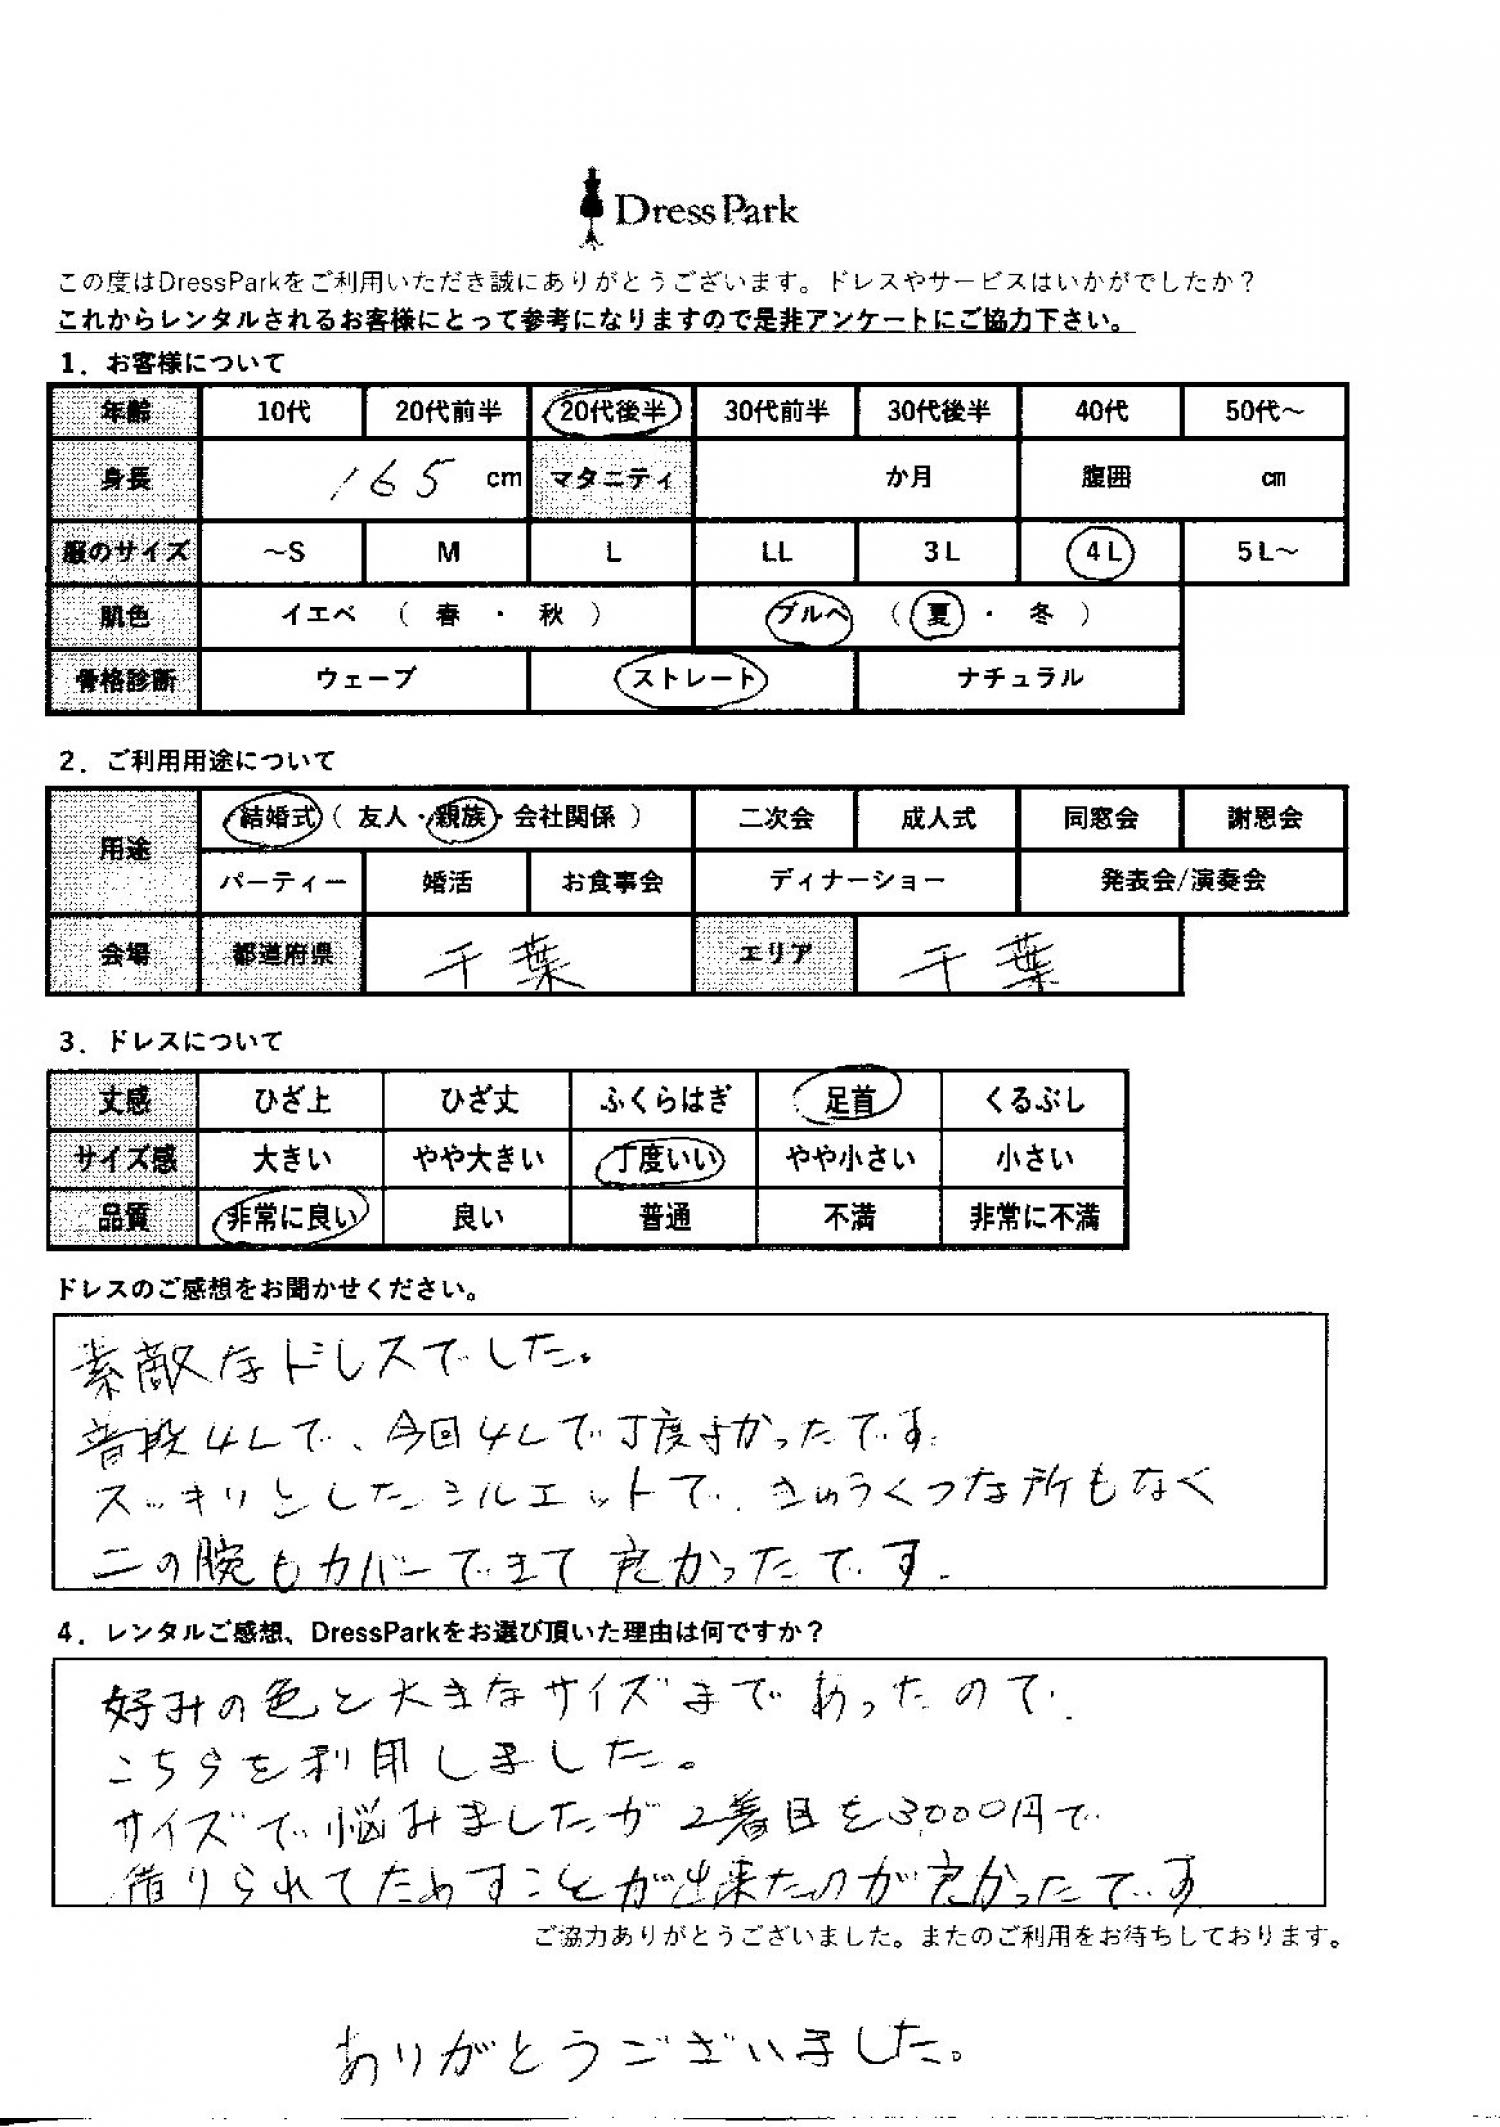 DressPark
この度はDressParkをご利用いただき誠にありがとうございます。ドレスやサービスはいかがでしたか？
これからレンタルされるお客様にとって参考になりますので是非アンケートにご協力下さい。
1．お客様について
年齢 10代 20代前半 20代後半 30代前半 30代後半 40代 50代～
身長 165 cm マタニティ か月 腹囲 cm
服のサイズ ～S M L LL 3L 4L 5L～
肌色 イエベ （ 春 ・ 秋 ） ブルベ （ 夏 ・ 冬 ）
骨格診断 ウェーブ ストレート ナチュラル
2．ご利用用途について
用途 結婚式（ 友人・親族・会社関係 ） 二次会 成人式 同窓会 謝恩会
パーティー 婚活 お食事会 ディナーショー 発表会/演奏会
会場 都道府県 千葉 エリア 千葉
3．ドレスについて
丈感 ひざ上 ひざ丈 ふくらはぎ 足首 くるぶし
サイズ感 大きい やや大きい 丁度いい やや小さい 小さい
品質 非常に良い 良い 普通 不満 非常に不満
ドレスのご感想をお聞かせください。
素敵なドレスでした。
普段4Lで、今回4Lで丁度よかったです。
スッキリとしたシルエットで、きゅうくつな所もなく
二の腕もカバーできて良かったです。
4．レンタルご感想、DressParkをお選び頂いた理由は何ですか？
好みの色と大きなサイズまであったので、
こちらを利用しました。
サイズで悩みましたが2着目を3,000円で
借りられてためすことが出来たのが良かったです
ご協力ありがとうございました。またのご利用をお待ちしております。
ありがとうございました。